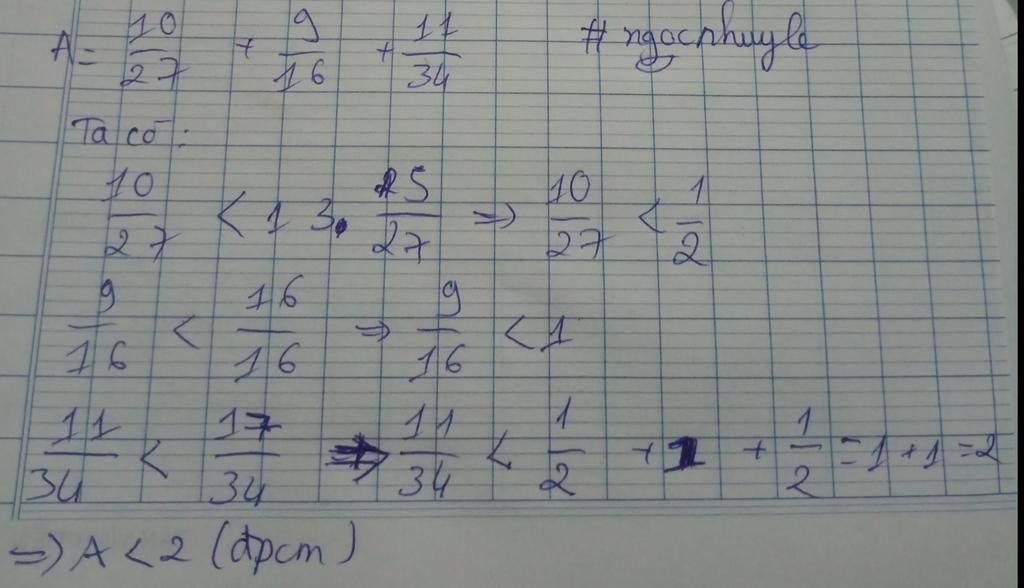 A = 10/27 + 9/16 + 11/34 #ngocnhuyle
Ta có:
10/27 < 13,5/27 => 10/27 < 1/2
9/16 < 16/16 => 9/16 < 1
11/34 < 17/34 => 11/34 < 1/2 + 1 + 1/2 = 1 + 1 = 2
=> A < 2 (đpcm)